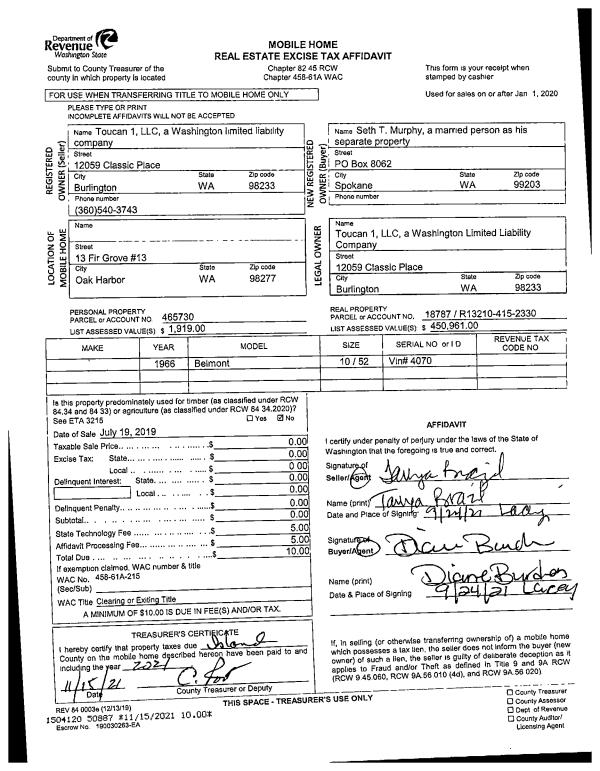 Department of
Revenue
Washington State
MOBILE HOME
REAL ESTATE EXCISE TAX AFFIDAVIT
Submit to County Treasurer of the
county in which property is located
Chapter 82 45 RCW
Chapter 458-61A WAC
This form is your receipt when
stamped by cashier
FOR USE WHEN TRANSFERRING TITLE TO MOBILE HOME ONLY
Used for sales on or after Jan 1, 2020
PLEASE TYPE OR PRINT
INCOMPLETE AFFIDAVITS WILL NOT BE ACCEPTED
REGISTERED
OWNER (Seller)
Name Toucan 1, LLC, a Washington limited liability
company
Street
12059 Classic Place
City State Zip code
Burlington WA 98233
Phone number
(360)540-3743
NEW REGISTERED
OWNER (Buyer)
Name Seth T. Murphy, a married person as his
separate property
Street
PO Box 8062
City State Zip code
Spokane WA 99203
Phone number
LOCATION OF
MOBILE HOME
Name
Street
13 Fir Grove #13
City State Zip code
Oak Harbor WA 98277
LEGAL OWNER
Name
Toucan 1, LLC, a Washington Limited Liability
Company
Street
12059 Classic Place
City State Zip code
Burlington WA 98233
PERSONAL PROPERTY
PARCEL or ACCOUNT NO. 465730
LIST ASSESSED VALUE(S) $ 1,919.00
REAL PROPERTY
PARCEL or ACCOUNT NO. 18787 / R13210-415-2330
LIST ASSESSED VALUE(S) $ 450,961.00
MAKE YEAR MODEL SIZE SERIAL NO or I D REVENUE TAX CODE NO
1966 Belmont 10 / 52 Vin# 4070
Is this property predominately used for timber (as classified under RCW
84.34 and 84 33) or agriculture (as classified under RCW 84 34.2020)?
See ETA 3215 Yes No
Date of Sale July 19, 2019
Taxable Sale Price $ 0.00
Excise Tax: State $ 0.00
Local $ 0.00
Delinquent Interest: State $ 0.00
Local $ 0.00
Delinquent Penalty $ 0.00
Subtotal $ 0.00
State Technology Fee $ 5.00
Affidavit Processing Fee $ 5.00
Total Due $ 10.00
If exemption claimed, WAC number & title
WAC No. 458-61A-215
(Sec/Sub)
WAC Title Clearing or Exiting Title
A MINIMUM OF $10.00 IS DUE IN FEE(S) AND/OR TAX.
AFFIDAVIT
I certify under penalty of perjury under the laws of the State of
Washington that the foregoing is true and correct.
Signature of
Seller/Agent Tanya Brazil
Name (print) Tanya Brazil
Date and Place of Signing 9/24/21 Lacey
Signature of
Buyer/Agent
Name (print) Diane Burches
Date & Place of Signing 9/24/21 Lacey
TREASURER'S CERTIFICATE
I hereby certify that property taxes due Island
County on the mobile home described hereon have been paid to and
including the year 2021
11/15/21
Date County Treasurer or Deputy
If, in selling (or otherwise transferring ownership of) a mobile home
which possesses a tax lien, the seller does not inform the buyer (new
owner) of such a lien, the seller is guilty of deliberate deception as it
applies to Fraud and/or Theft as defined in Title 9 and 9A RCW
(RCW 9.45.060, RCW 9A.56 010 (4d), and RCW 9A.56 020).
THIS SPACE - TREASURER'S USE ONLY
County Treasurer
County Assessor
Dept of Revenue
County Auditor/
Licensing Agent
REV 84 0003e (12/13/19)
1504120 50887 *11/15/2021 10.00*
Escrow No. 190030263-EA